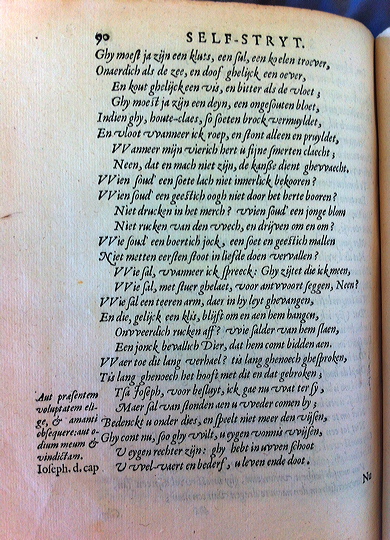 90 SELF-STRYT.
Ghy moest ja zijn een kluts, een sul, een koelen troever,
Onaerdich als de zee, en doof ghelijck een oever,
En kout ghelijck een vis, en bitter als de roet;
Ghy moest ja zijn een deyn, een ongesouten bloet,
Indien ghy, houte-claes, so soeten brock vermuyldet,
En vloot vvanneer ick roep, en stont alleen en pruyldet,
VVanneer mijn vierich hert u sijne smerten claecht;
Neen, dat en mach niet zijn, de kanße dient ghevvaecht,
VVien soud' een soete lach niet innerlick bekooren?
VVien soud' een geestich oogh niet door het herte booren?
Niet drucken in het merch? vvien soud' een jonge blom
Niet rucken van den vvech, en drijven om en om?
VVie soud' een boertich jock, een soet en geestich mallen
Niet metten eersten stoot in liefde doen vervallen?
VVie sal, vvanneer ick spreeck: Ghy zijtet die ick meen,
VVie sal, met stuer ghelaet, voor antvvoort seggen, Neen?
VVie sal een teeren arm, daer in hy leyt ghevangen,
En die, gelijck een klis, blijft om en aen hem hangen,
Onvveerdich rucken aff? vvie salder van hem slaen,
Een jonck bevallich Dier, dat hem comt bidden aen.
VVaer toe dit lang verhael? tis lang ghenoech ghesproken,
Tis lang ghenoech het hooft met dit en dat gebroken;
Tsa Joseph, voor besluyt, ick gae nu vvat ter sy,
Maer sal van stonden aen u vveder comen by;
Bedenckt u onder dies, en speelt niet meer den vvijsen,
Ghy cont nu, soo ghy vvilt, u eygen vonnis vvijsen,
U eygen rechter zijn: ghy hebt in uvven schoot
U vvel-vaert en bederf, u leven ende doot.
Aut præsentem
voluptatem eli-
ge, & amanti
obsequere; aut o-
dium meum &
vindictam.
Ioseph. d. cap
Na